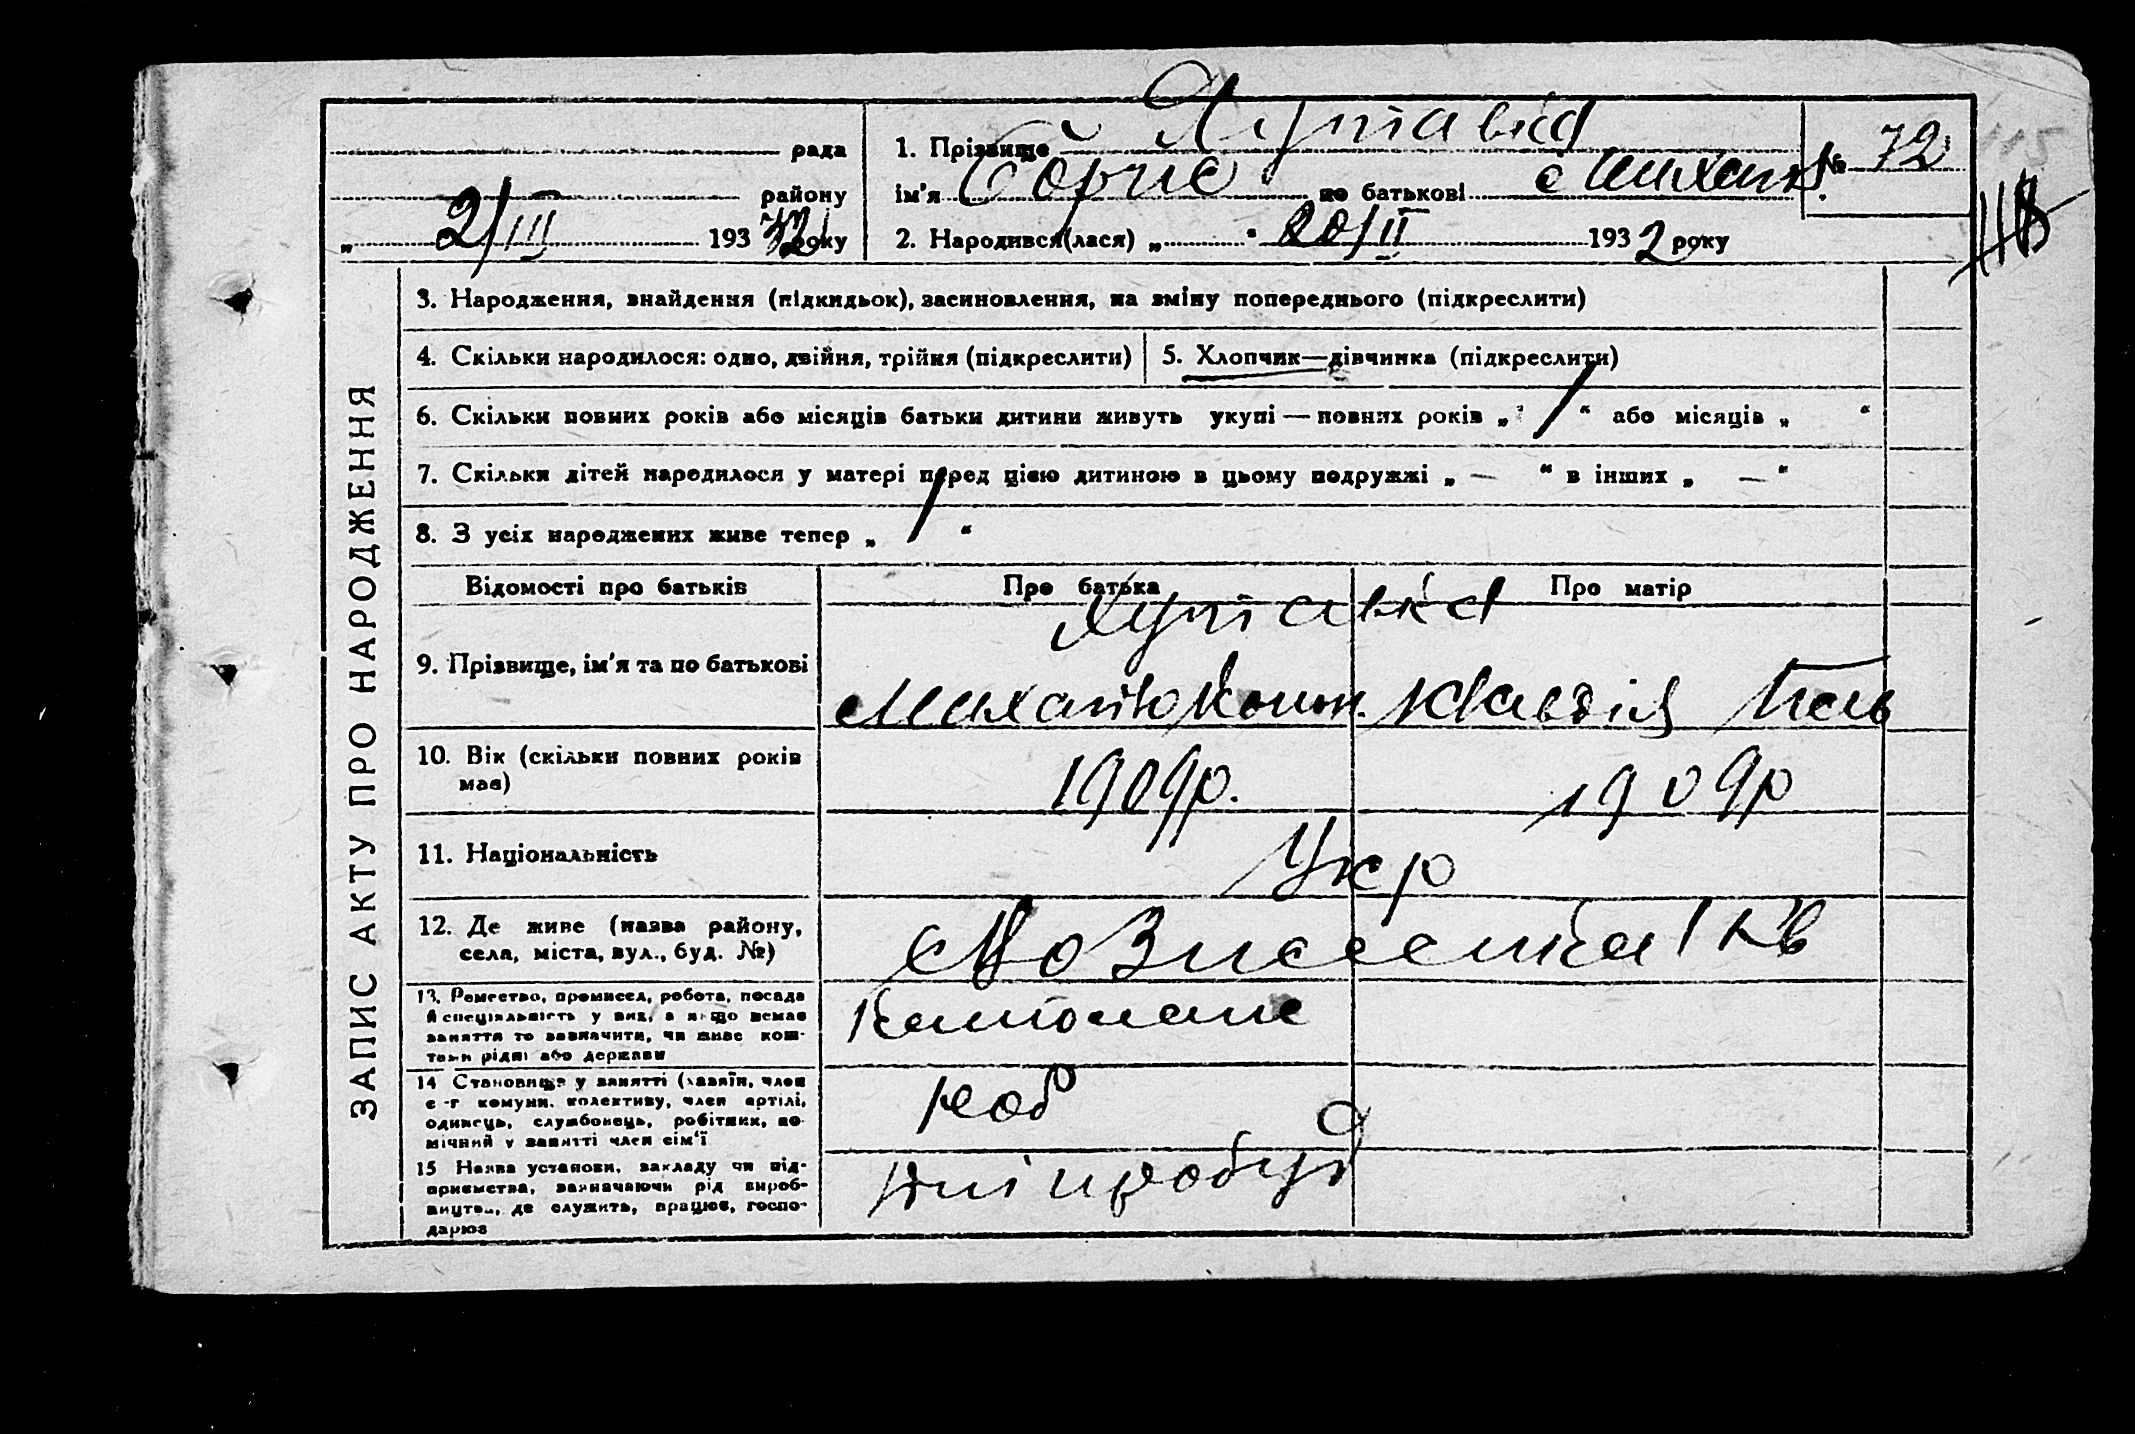 рада
1. Прізвище
№ 72
району
ім'я Борис по батькові Михайл.
„ 2/III 1932 року
2. Народився(лася) „ 20/II 1932 року
118
ЗАПИС АКТУ ПРО НАРОДЖЕННЯ
3. Народження, знайдення (підкидьок), засиновлення, на зміну попереднього (підкреслити)
4. Скільки народилося: одно, двійня, трійня (підкреслити)
5. Хлопчик—дівчинка (підкреслити)
6. Скільки повних років або місяців батьки дитини живуть укупі — повних років „ 1 “ або місяців „ “
7. Скільки дітей народилося у матері перед цією дитиною в цьому подружжі „ — “ в інших „ — “
8. З усіх народжених живе тепер „ 1 “
Відомості про батьків
Про батька
Про матір
9. Прізвище, ім'я та по батькові
Михайло Клавдія
10. Вік (скільки повних років
має)
1909р.
1909р
11. Національність
Укр
12. Де живе (назва району,
села, міста, вул., буд. №)
13. Ремество, промисел, робота, посада
й спеціяльність у ній, а якщо немає
заняття то зазначити, чи живе кош-
тами рідні або держави
14 Становище у занятті (хазяїн, член
с.-г комуни, колективу, член артілі,
одинець, службовець, робітник, по-
мічний у занятті член сім'ї
роб
15 Назва установи, закладу чи під-
приємства, зазначаючи рід вироб-
ництва, де служить, працює, госпо-
дарює
Дніпробуд